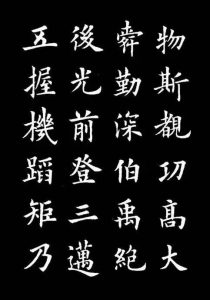 物斯覩功髙大
舜勤深伯禹絶
後光前登三邁
五握機蹈矩乃